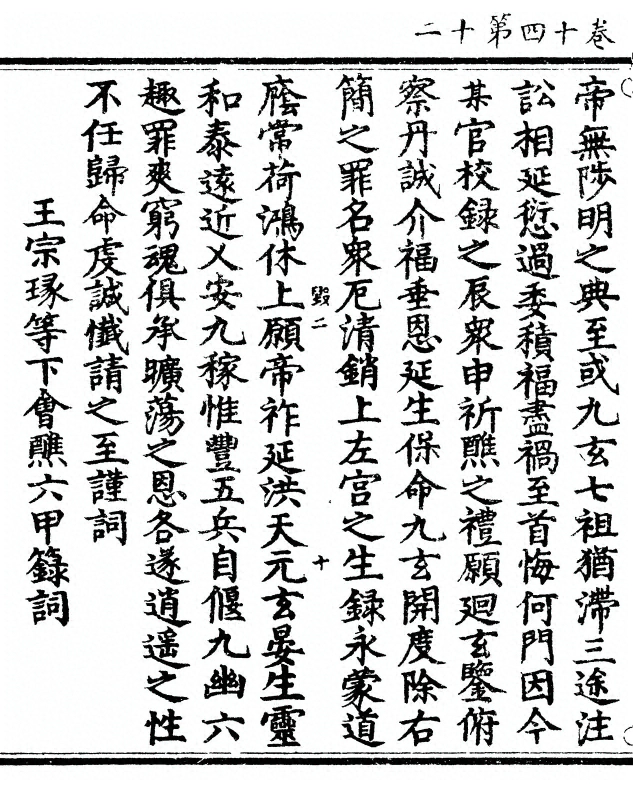 卷十四第十二
帝無陟明之典至或九玄七祖猶滯三途注
訟相延愆過委積福盡禍至首悔何門因今
某官校録之辰衆申祈醮之禮願廻玄鑒俯
察丹誠介福垂恩延生保命九玄開度除右
簡之罪名衆厄清銷上左宫之生録永蒙道
廕常荷鴻休上願帝祚延洪天元玄晏生靈
和泰遠近乂安九稼惟豐五兵自偃九幽六
趣罪爽窮魂俱承曠蕩之恩各遂逍遥之性
不任歸命虔誠懺請之至謹詞
王宗瑑等下會醮六甲籙詞
毀二
十